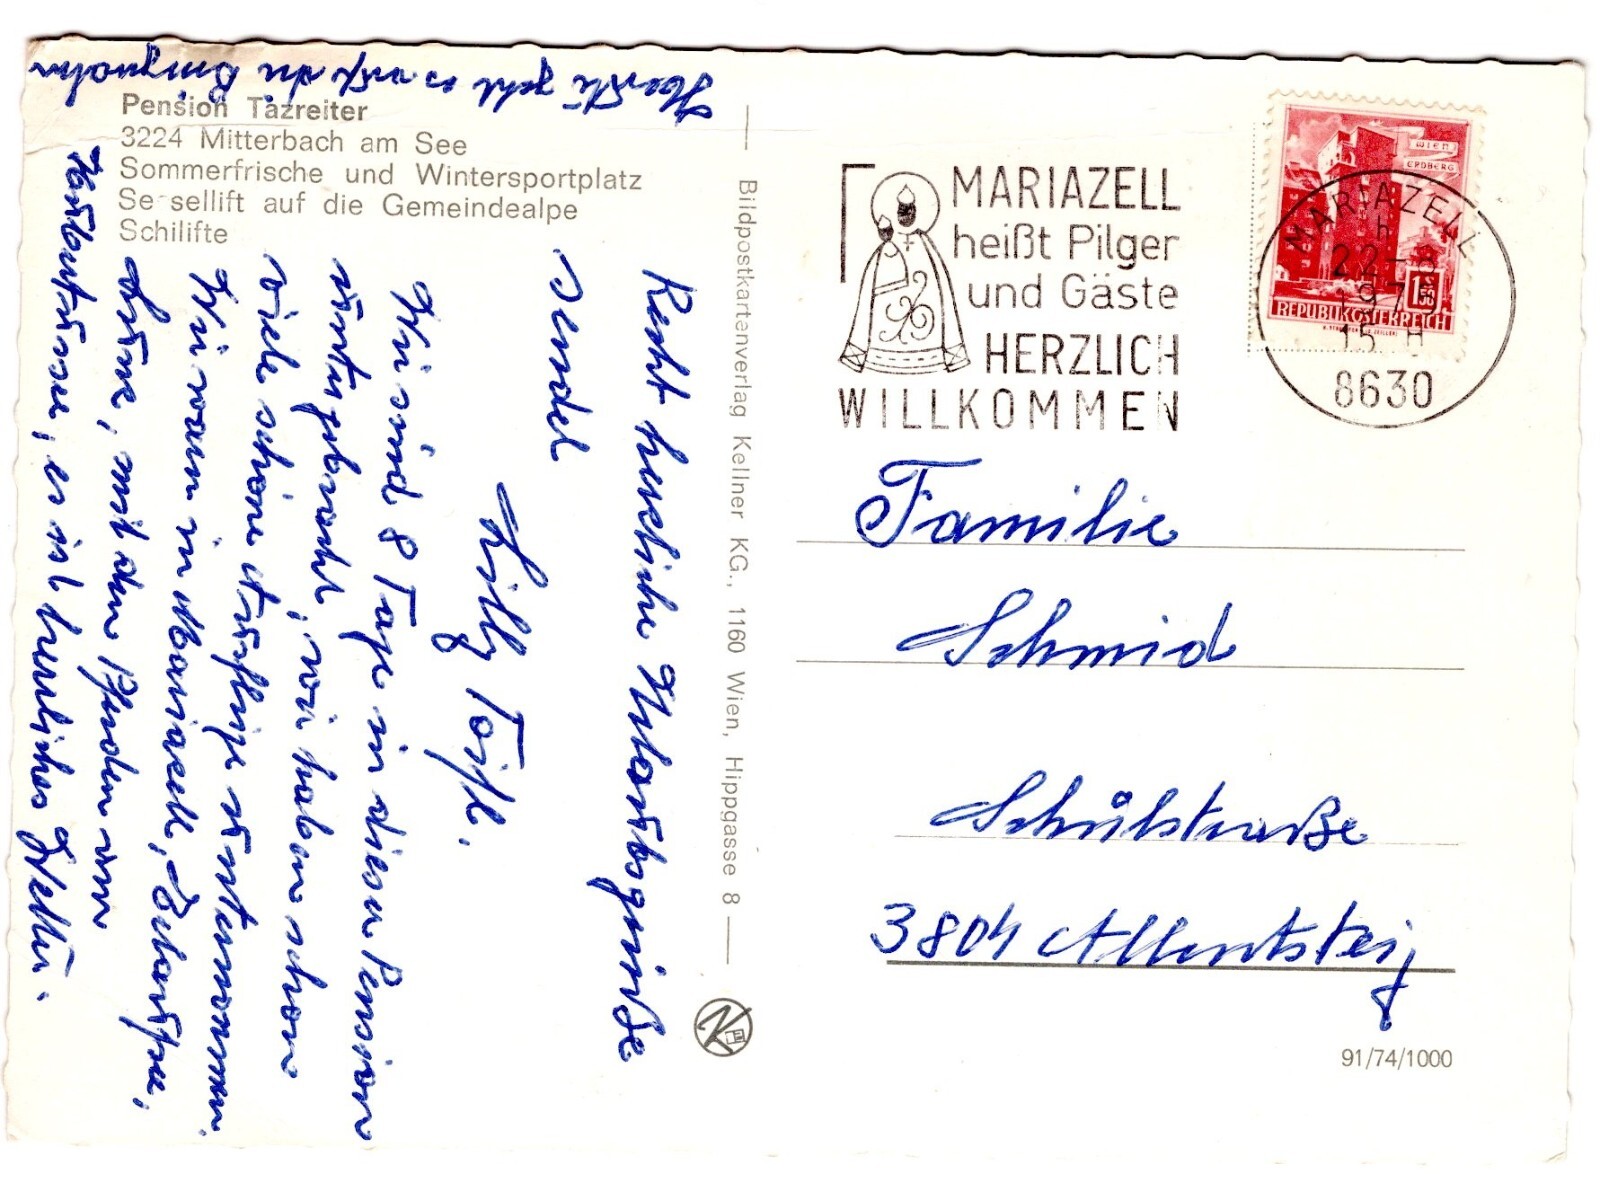 Pension Tazreiter
3224 Mitterbach am See
Sommerfrische und Wintersportplatz
Sessellift auf die Gemeindealpe
Schilifte
Recht herzliche Urlaubsgrüße
sendet
Lilly Toifl.
Wir sind 8 Tage in dieser Pension
untergebracht, wir haben schon
viele schöne Ausflüge unternommen.
Wir waren in Mariazell, Erlaufsee,
Lunz, mit den Pferden zum
Hubertussee, es ist herrliches Wetter.
geht es auf die
Bildpostkartenverlag Kellner KG., 1160 Wien, Hippgasse 8
MARIAZELL
heißt Pilger
und Gäste
HERZLICH
WILLKOMMEN
WIEN
ERDBERG
REPUBLIK ÖSTERREICH
MARIAZELL
15
8630
Familie
Schmid
Schulstraße
3804 Allentsteig
91/74/1000